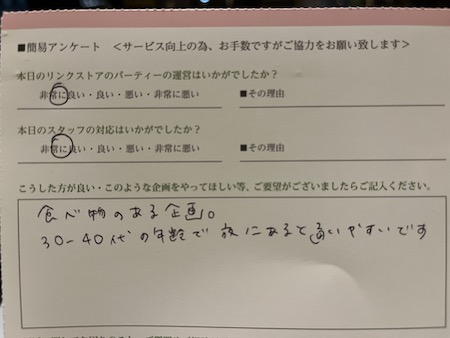 ■簡易アンケート <サービス向上の為、お手数ですがご協力をお願い致します>
本日のリンクストアのパーティーの運営はいかがでしたか?
非常に良い・良い・悪い・非常に悪い ■その理由
本日のスタッフの対応はいかがでしたか?
非常に良い・良い・悪い・非常に悪い ■その理由
こうした方が良い・このような企画をやってほしい等、ご要望がございましたらご記入ください。
食べ物のある企画。
30-40代の年齢で夜にあると通いやすいです